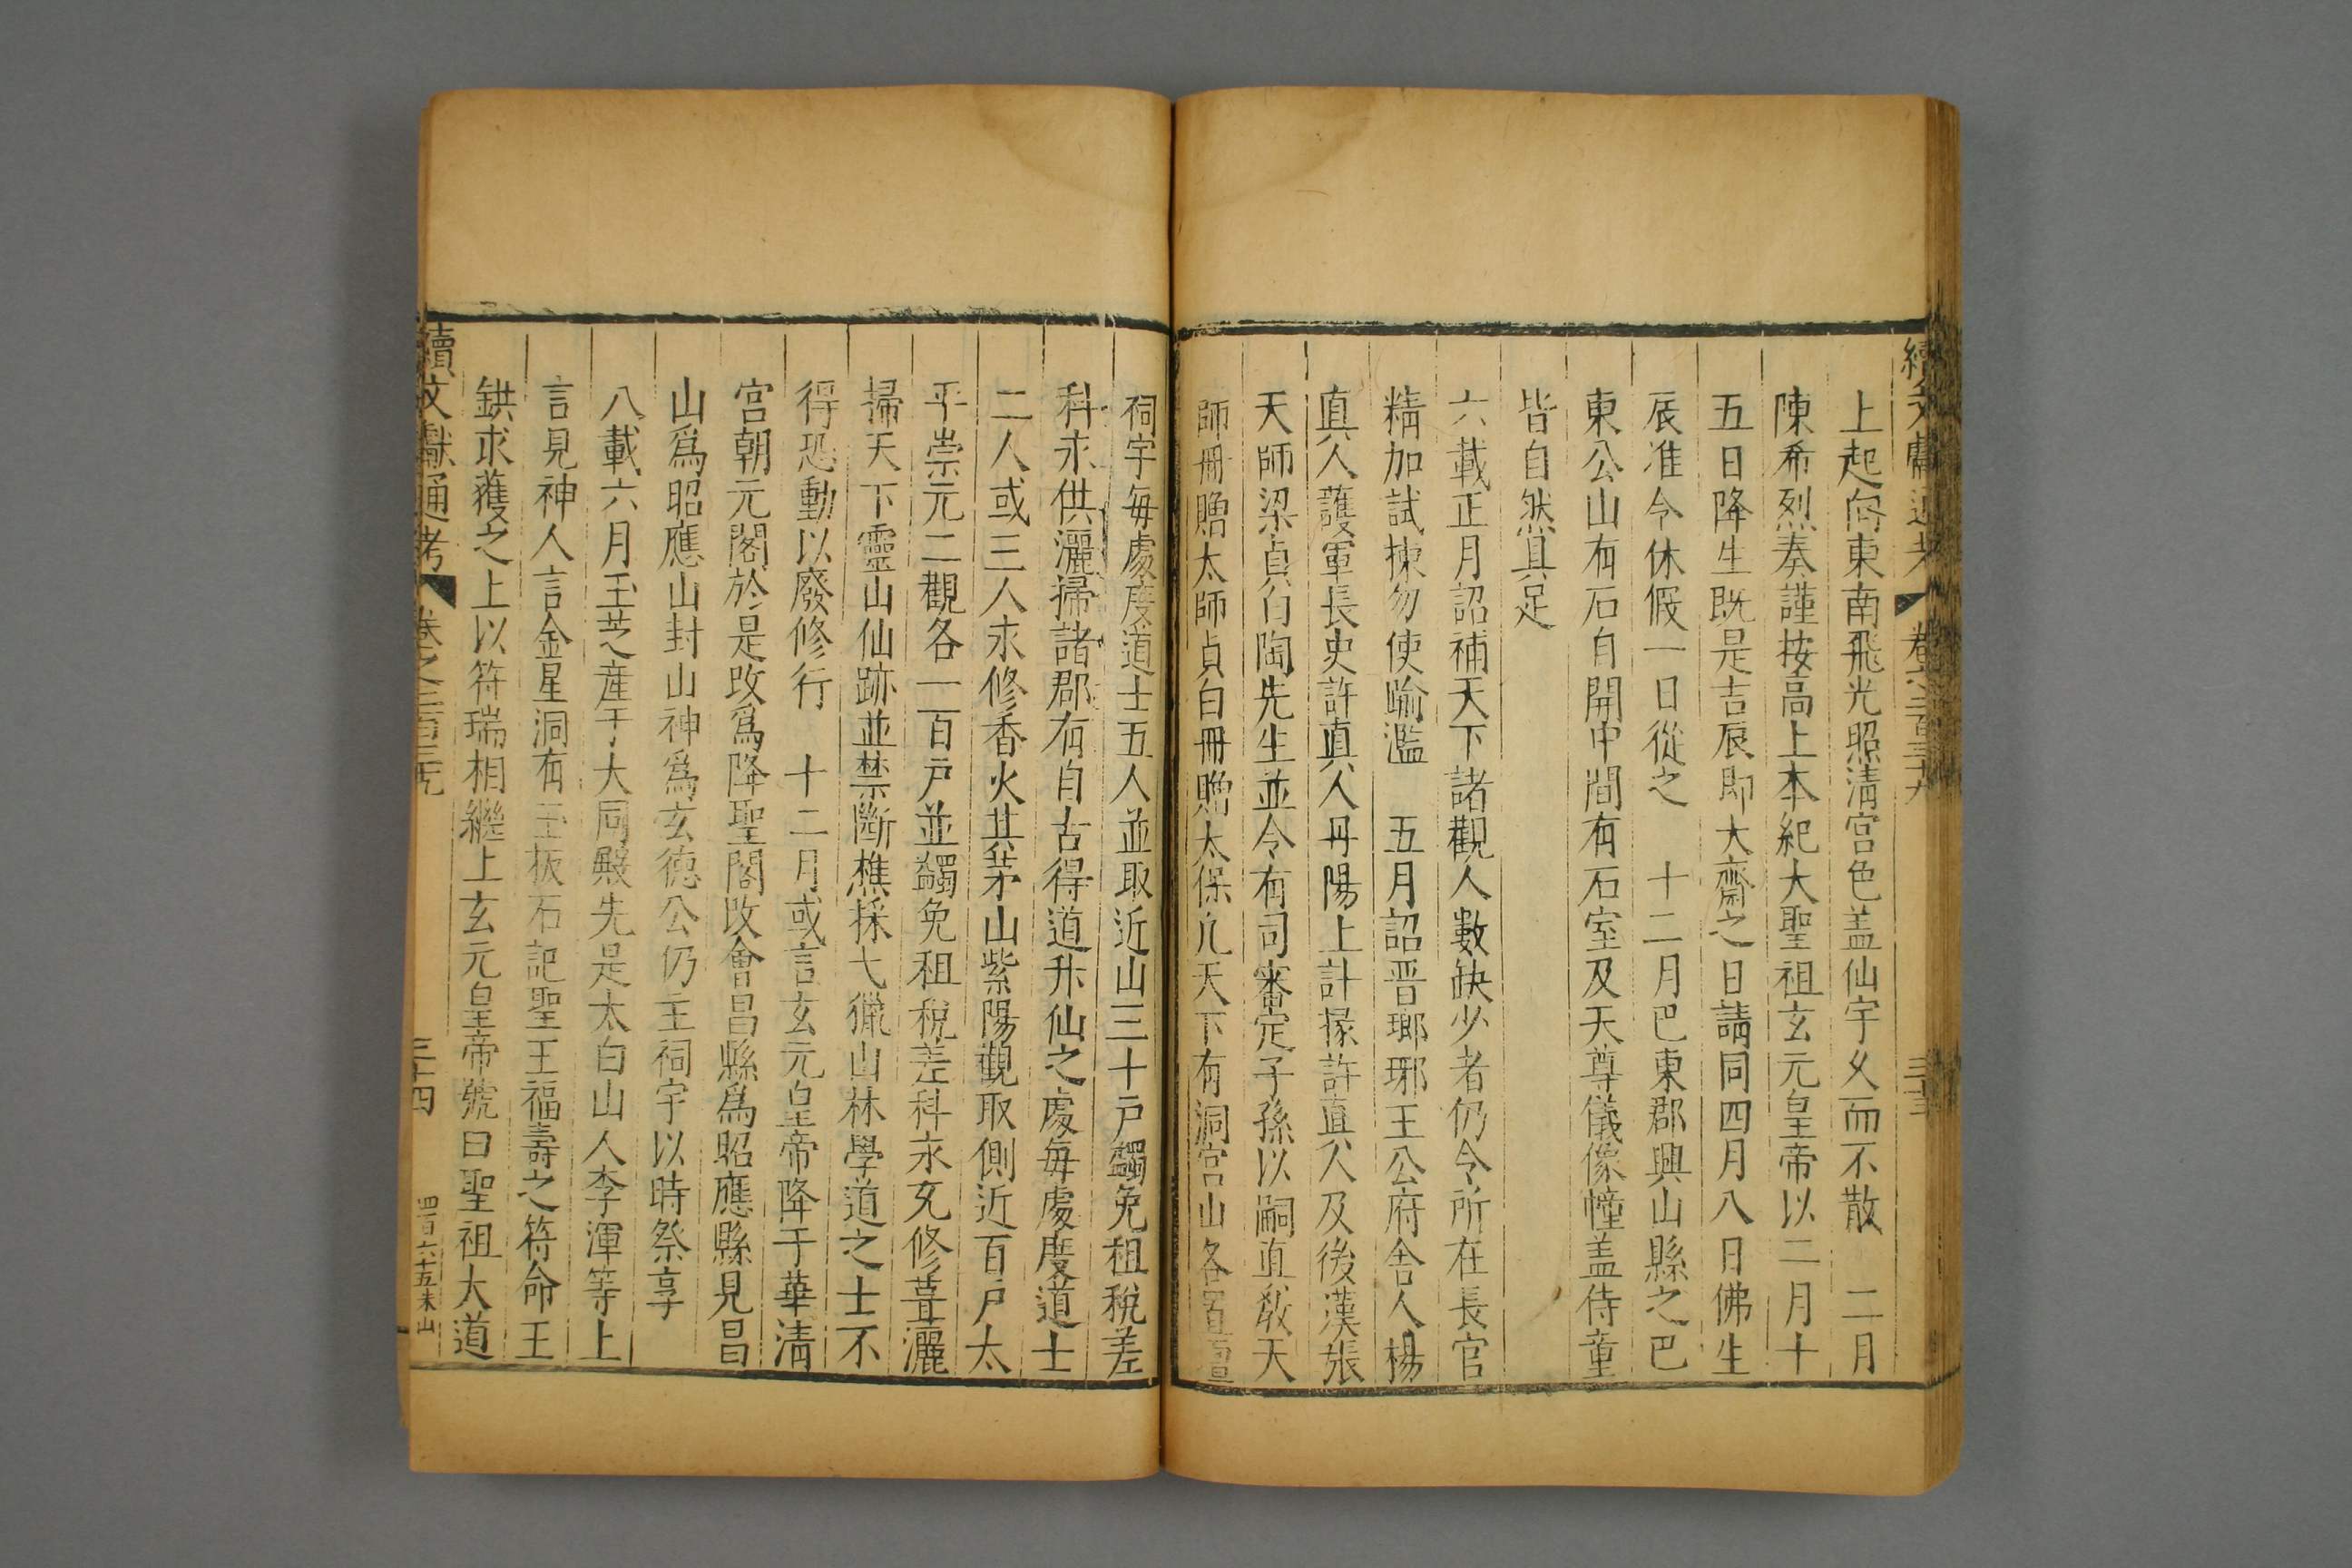 上起向東南飛光照清宫色盖仙宇乂而不散　二月
陳希烈奏謹按高上本紀大聖祖玄元皇帝以二月十
五日降生既是吉辰即大齋之日請同四月八日佛生
辰准令休假一日從之　十二月巴東郡興山縣之巴
東公山有石自開中間有石室及天尊儀像幢盖侍童
皆自然具足
六載正月詔補天下諸觀人數缺少者仍令所在長官
精加試揀勿使踰濫　五月詔晋瑯琊王公府舍人楊
真人護軍長史許真人丹陽上計掾許真人及後漢張
天師梁貞白陶先生並令有司審定子孫以嗣真教天
師冊贈太師貞白冊贈太保凢天下有洞宫山各置壇
祠宇每處度道士五人並取近山三十戶蠲免租稅差
科永供灑掃諸郡有自古得道升仙之處每處度道士
二人或三人永修香火其茅山紫陽觀取側近百戶太
平崇元二觀各一百戶並蠲免租稅差科永充修葺灑
掃天下靈山仙跡並禁斷樵採弋獵山林學道之士不
得恐動以廢修行　十二月或言玄元皇帝降于華清
宫朝元閣於是改爲降聖閣改會昌縣爲昭應縣見昌
山爲昭應山封山神爲玄德公仍主祠宇以時祭享
八載六月玉芝産于大同殿先是太白山人李渾等上
言見神人言金星洞有玉板石記聖王福壽之符命王
鉷求獲之上以符瑞相繼上玄元皇帝號曰聖祖大道
續文獻通考　卷之二百三九　三十四　四百六十五朱山